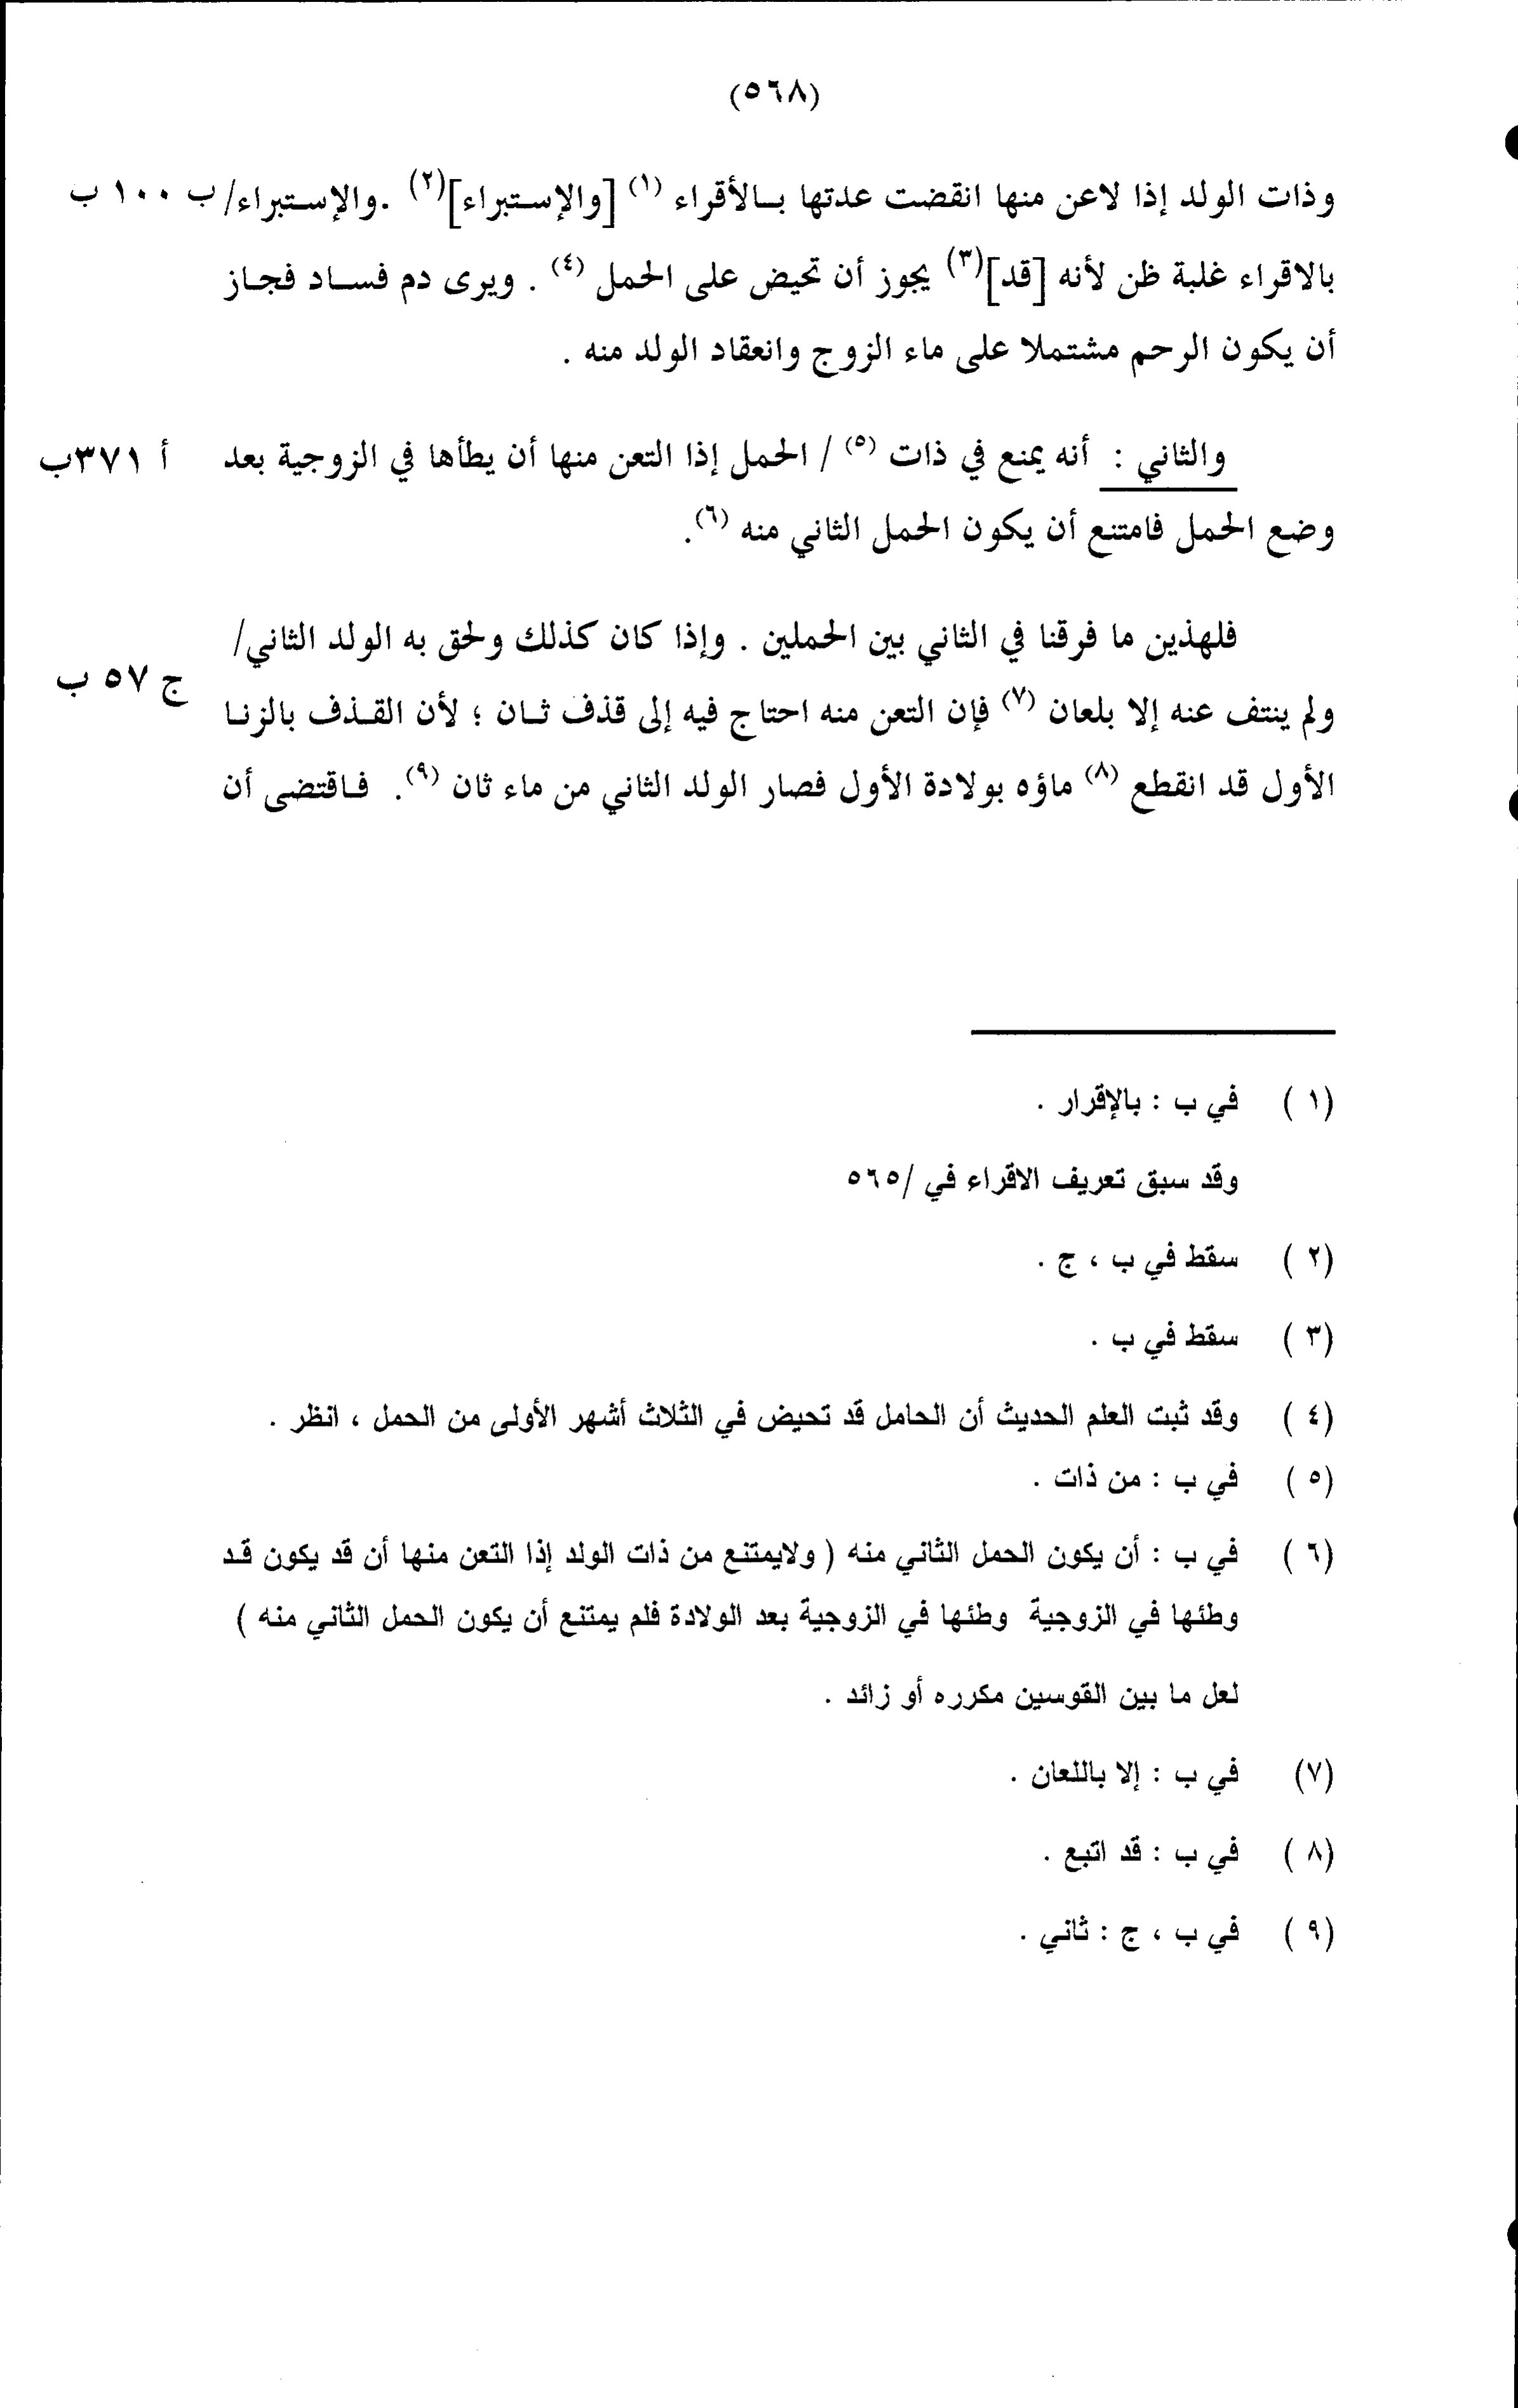 (٥٦٨)
وذات الولد إذا لاعن منها انقضت عدتها بالأقراء (١) [والإستبراء](٢) .والإستبراء/ ب ١٠٠ ب
بالاقراء غلبة ظن لأنه [قد](٣) يجوز أن تحيض على الحمل (٤) . ويرى دم فساد فجاز
أن يكون الرحم مشتملا على ماء الزوج وانعقاد الولد منه .
والثاني : أنه يمنع في ذات (٥) / الحمل إذا التعن منها أن يطأها في الزوجية بعد أ ٣٧١ب
وضع الحمل فامتنع أن يكون الحمل الثاني منه (٦).
فلهذين ما فرقنا في الثاني بين الحملين . وإذا كان كذلك ولحق به الولد الثاني/
ج ٥٧ ب
ولم ينتف عنه إلا بلعان (٧) فإن التعن منه احتاج فيه إلى قذف ثان ؛ لأن القذف بالزنا
الأول قد انقطع (٨) ماؤه بولادة الأول فصار الولد الثاني من ماء ثان (٩). فاقتضى أن
(١) في ب : بالإقرار .
وقد سبق تعريف الاقراء في /٥٦٥
(٢) سقط في ب ، ج .
(٣) سقط في ب .
(٤) وقد ثبت العلم الحديث أن الحامل قد تحيض في الثلاث أشهر الأولى من الحمل ، انظر .
(٥) في ب : من ذات .
(٦) في ب : أن يكون الحمل الثاني منه ( ولايمتنع من ذات الولد إذا التعن منها أن قد يكون قد
وطئها في الزوجية وطئها في الزوجية بعد الولادة فلم يمتنع أن يكون الحمل الثاني منه )
لعل ما بين القوسين مكرره أو زائد .
(٧) في ب : إلا باللعان .
(٨) في ب : قد اتبع .
(٩) في ب ، ج : ثاني .